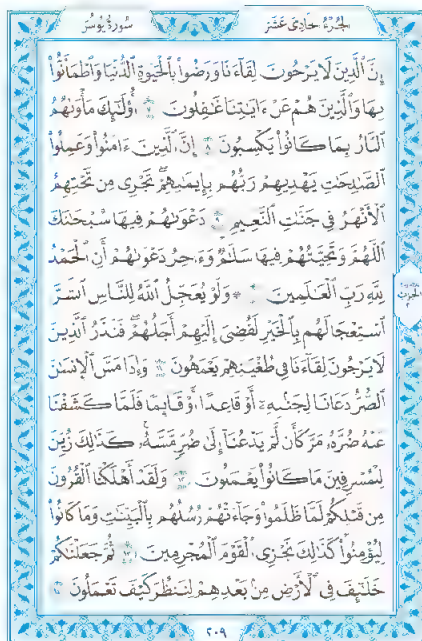 الجزء الحادي عشر
سورة يونس
إِنَّ الَّذِينَ لَا يَرْجُونَ لِقَاءَنَا وَرَضُوا بِالْحَيَوٰةِ الدُّنْيَا وَاطْمَأَنُّوا
بِهَا وَالَّذِينَ هُمْ عَنْ ءَايَٰتِنَا غَٰفِلُونَ ٧ أُولَٰئِكَ مَأْوَىٰهُمُ
النَّارُ بِمَا كَانُوا يَكْسِبُونَ ٨ إِنَّ الَّذِينَ ءَامَنُوا وَعَمِلُوا
الصَّٰلِحَٰتِ يَهْدِيهِمْ رَبُّهُم بِإِيمَٰنِهِمْ تَجْرِي مِن تَحْتِهِمُ
الْأَنْهَٰرُ فِي جَنَّٰتِ النَّعِيمِ ٩ دَعْوَىٰهُمْ فِيهَا سُبْحَٰنَكَ
اللَّهُمَّ وَتَحِيَّتُهُمْ فِيهَا سَلَٰمٌ وَءَاخِرُ دَعْوَىٰهُمْ أَنِ الْحَمْدُ
لِلَّهِ رَبِّ الْعَٰلَمِينَ ۞ وَلَوْ يُعَجِّلُ اللَّهُ لِلنَّاسِ الشَّرَّ
اسْتِعْجَالَهُم بِالْخَيْرِ لَقُضِيَ إِلَيْهِمْ أَجَلُهُمْ فَنَذَرُ الَّذِينَ
لَا يَرْجُونَ لِقَاءَنَا فِي طُغْيَٰنِهِمْ يَعْمَهُونَ ١١ وَإِذَا مَسَّ الْإِنسَٰنَ
الضُّرُّ دَعَانَا لِجَنبِهِ أَوْ قَاعِدًا أَوْ قَائِمًا فَلَمَّا كَشَفْنَا
عَنْهُ ضُرَّهُ مَرَّ كَأَن لَّمْ يَدْعُنَا إِلَىٰ ضُرٍّ مَّسَّهُ كَذَٰلِكَ زُيِّنَ
لِلْمُسْرِفِينَ مَا كَانُوا يَعْمَلُونَ ١٢ وَلَقَدْ أَهْلَكْنَا الْقُرُونَ
مِن قَبْلِكُمْ لَمَّا ظَلَمُوا وَجَاءَتْهُمْ رُسُلُهُم بِالْبَيِّنَٰتِ وَمَا كَانُوا
لِيُؤْمِنُوا كَذَٰلِكَ نَجْزِي الْقَوْمَ الْمُجْرِمِينَ ١٣ ثُمَّ جَعَلْنَٰكُمْ
خَلَٰئِفَ فِي الْأَرْضِ مِن بَعْدِهِمْ لِنَنظُرَ كَيْفَ تَعْمَلُونَ ١٤
٢٠٩